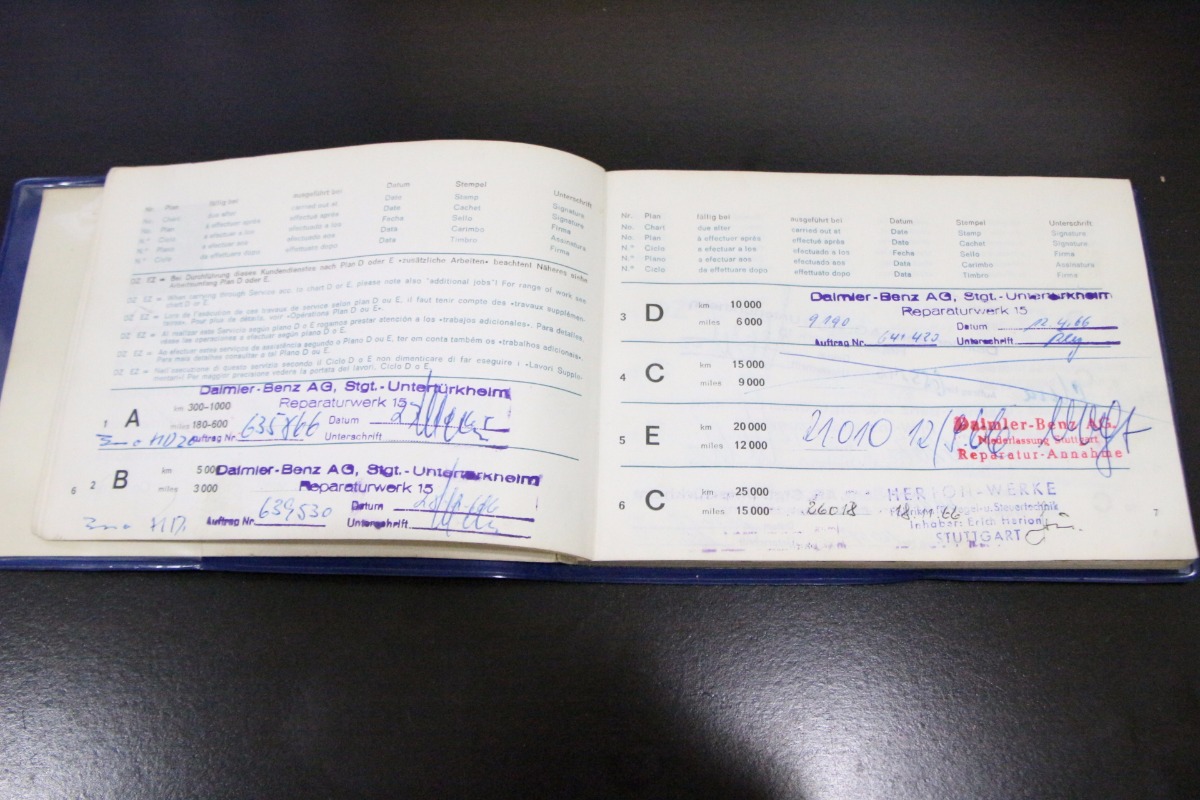 Nr. Plan fällig bei ausgeführt bei Datum Stempel Unterschrift
No. Chart due after carried out at Date Stamp Signature
No. Plan à effectuer après effectué après Date Cachet Signature
N.° Ciclo a efectuar a los efectuado a los Fecha Sello Firma
N.° Plano a efetuar aos efetuado aos Data Carimbo Assinatura
N.° Ciclo da effettuare dopo effettuato dopo Data Timbro Firma
DZ EZ = Bei Durchführung dieses Kundendienstes nach Plan D oder E «zusätzliche Arbeiten» beachten! Näheres siehe
Arbeitsumfang Plan D oder E.
DZ EZ = When carrying through Service acc. to chart D or E, please note also "additional jobs"! For range of work see
chart D or E.
DZ EZ = Lors de l'exécution de ces travaux de service selon plan D ou E, il faut tenir compte des «travaux supplémen-
taires». Pour plus de détails, voir «Opérations Plan D ou E».
DZ EZ = Al realizar este Servicio según plano D o E rogamos prestar atención a los «trabajos adicionales». Para detalles,
véase las operaciones a efectuar según plano D o E.
DZ EZ = Ao efectuar estes serviços de assistência segundo o Plano D ou E, ter em conta também os «trabalhos adicionais».
Para mais detalhes consultar o tal Plano D ou E.
DZ EZ = Nell'esecuzione di questo servizio secondo il Ciclo D o E non dimenticare di far eseguire i «Lavori Supple-
mentari»! Per maggior precisione vedere la portata dei lavori, Ciclo D o E.
Daimler-Benz AG, Stgt.-Untertürkheim
Reparaturwerk 15
1 A km 300-1000
miles 180-600
Datum
Auftrag Nr. 635866 Unterschrift
Daimler-Benz AG, Stgt.-Untertürkheim
Reparaturwerk 15
2 B km 5 000
miles 3 000
Datum
Auftrag Nr. 639530 Unterschrift
6
Nr. Plan fällig bei ausgeführt bei Datum Stempel Unterschrift
No. Chart due after carried out at Date Stamp Signature
No. Plan à effectuer après effectué après Date Cachet Signature
N.° Ciclo a efectuar a los efectuado a los Fecha Sello Firma
N.° Plano a efetuar aos efetuado aos Data Carimbo Assinatura
N.° Ciclo da effettuare dopo effettuato dopo Data Timbro Firma
3 D km 10 000
miles 6 000
Daimler-Benz AG, Stgt.-Untertürkheim
Reparaturwerk 15
9190 Datum 12.4.66
Auftrag Nr. 641420 Unterschrift
4 C km 15 000
miles 9 000
5 E km 20 000
miles 12 000
21010
Daimler-Benz AG.
Niederlassung Stuttgart
Reparatur-Annahme
6 C km 25 000
miles 15 000
26018 18.11.66
HERION-WERKE
Steuertechnik
Inhaber: Erich Herion
STUTTGART
7